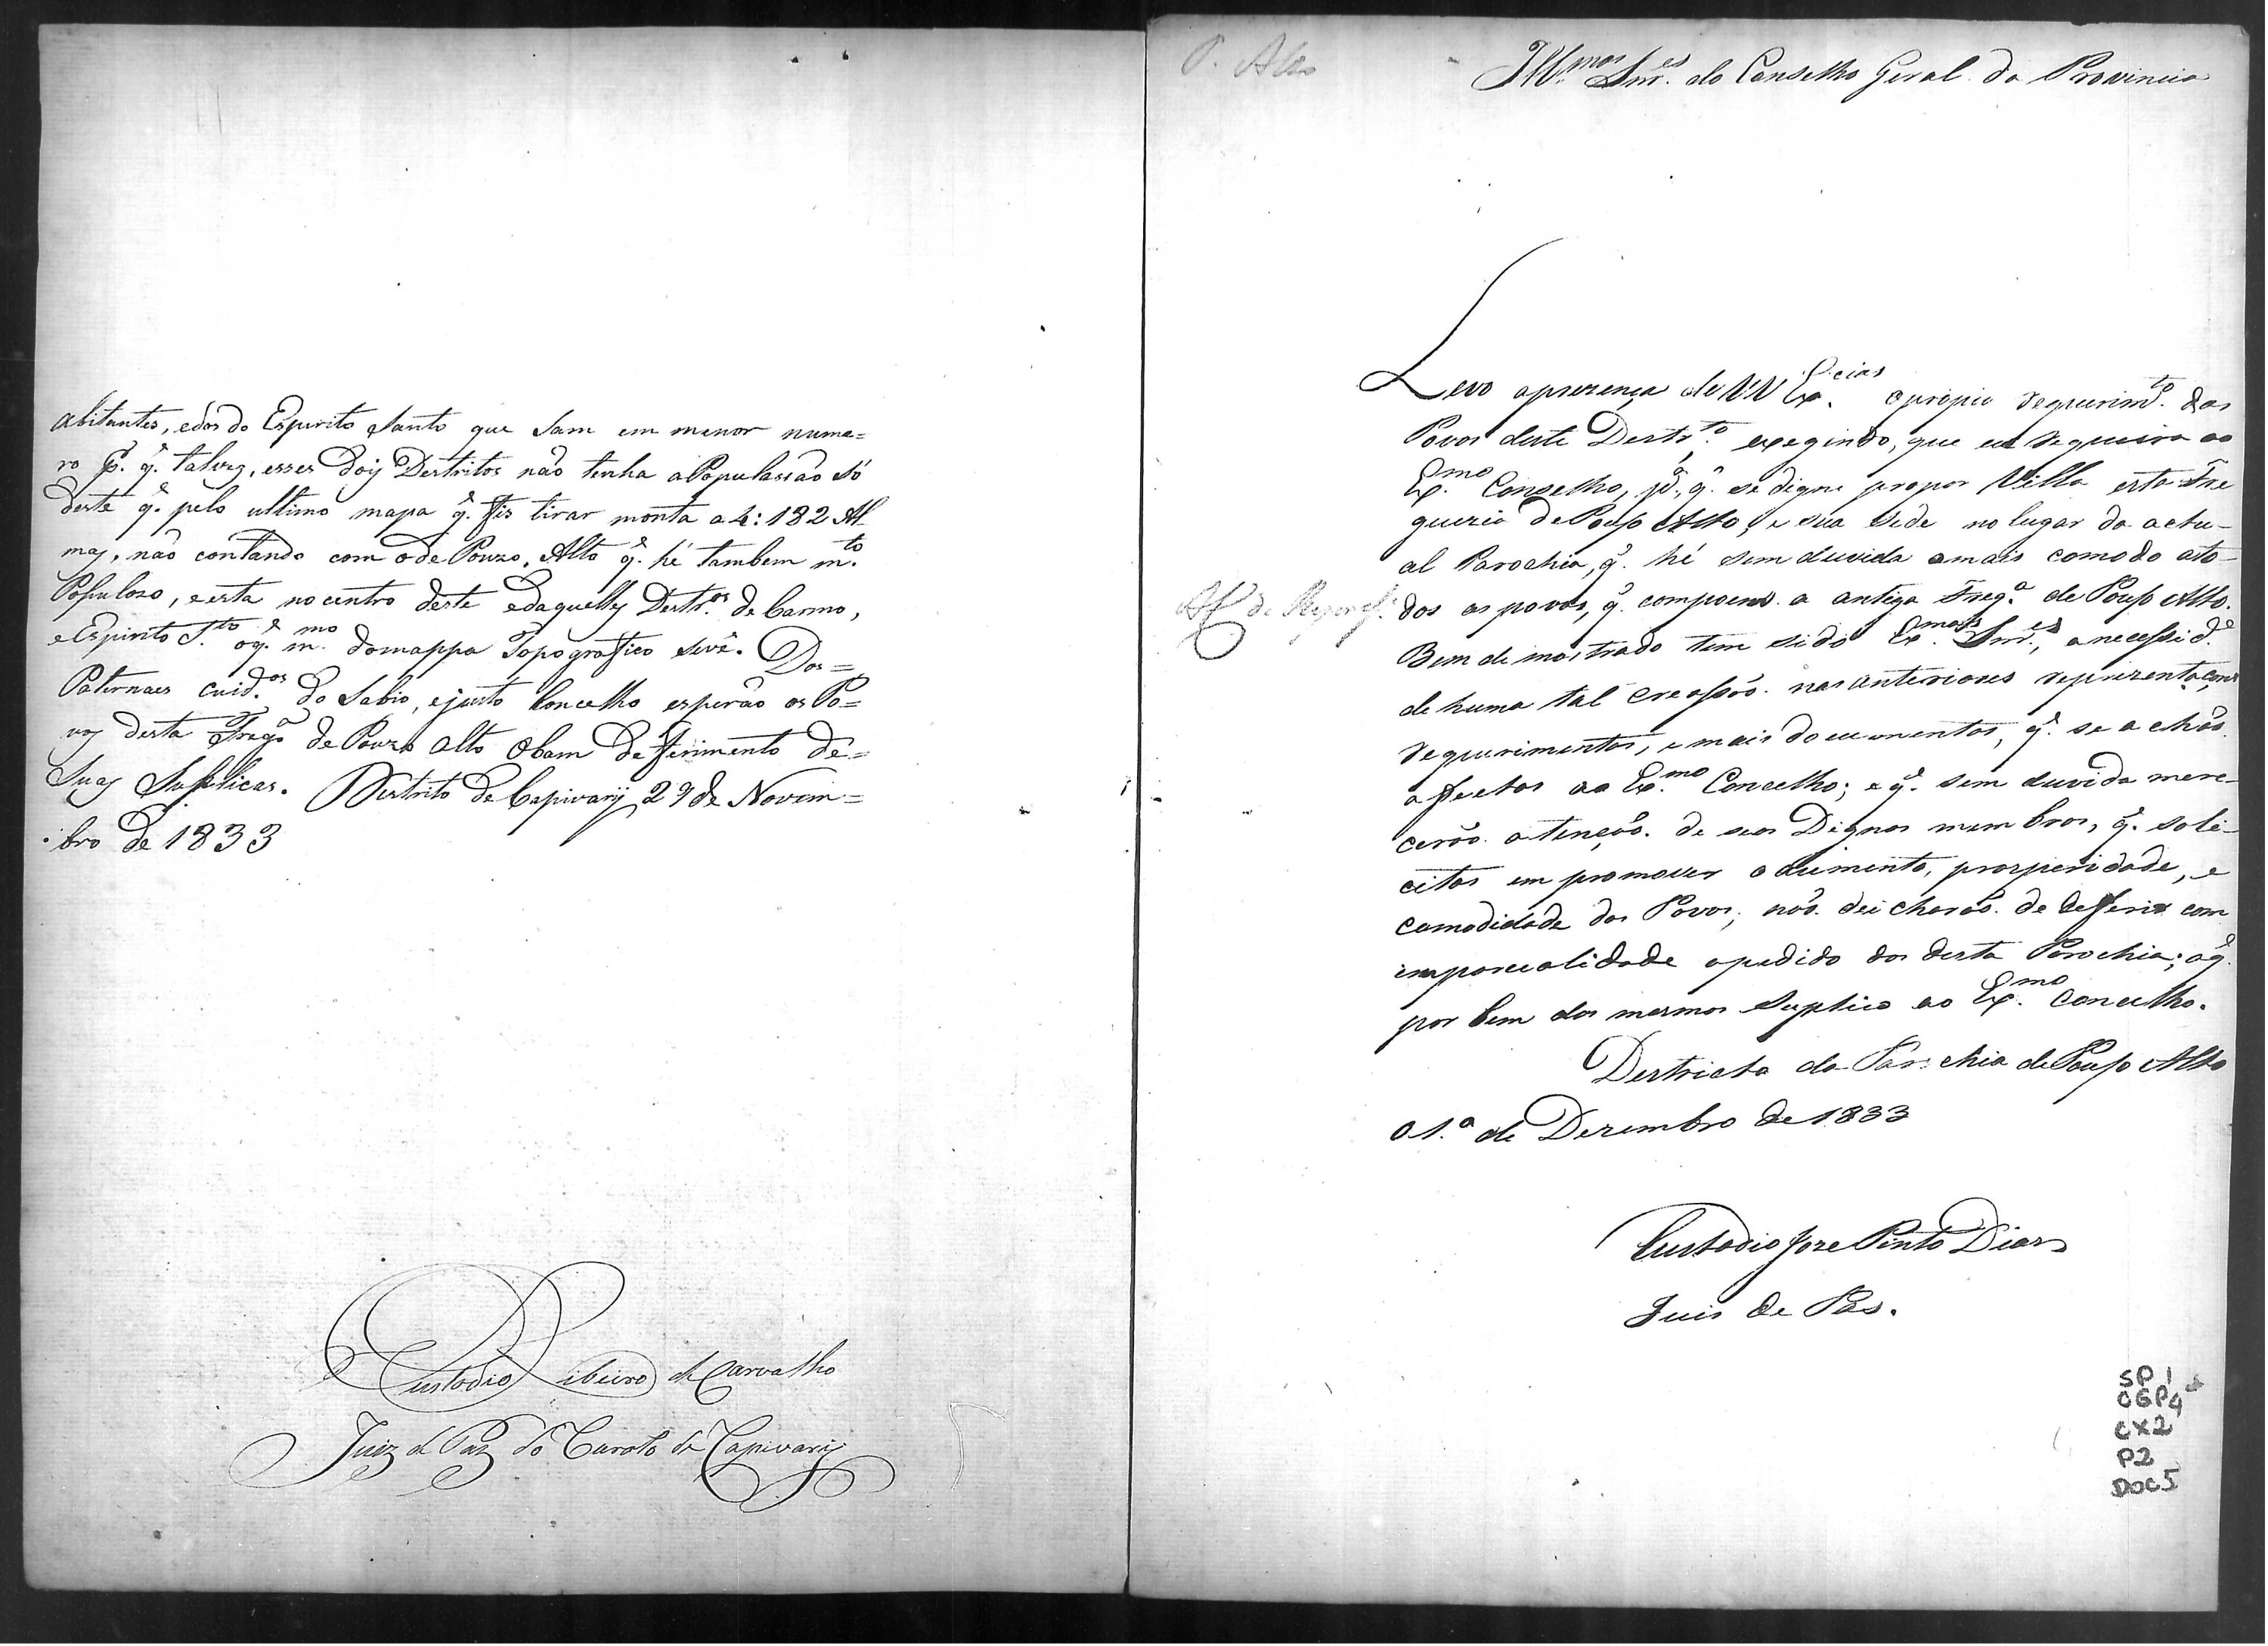 abitantes, e dos do Espirito Santo que Sam em menor nume=
ro p.ª q̃. talvez, esses doiz Destritos não tenha a Populassão só
deste q̃. pelo ultimo mapa q̃. fis tirar monta a 4:182 Al
mas, não contando com o de Pouzo Alto q̃. hé tambem m.to
Populozo, e esta no centro deste e daquelles Destr.os de Carmo,
e Espirito S.to oq̃. m.mo do mappa Topografico sevê. Dos=
Paternaes cuid.os do Sabio, e justo Concelho esperão os Po=
vos desta Freg.ª de Pouzo Alto o bam deferimento de=
Suas Suplicas. Destrito de Capivarÿ 29 de Novem=
bro de 1833
Custodio Ribeiro de Carvalho
Juiz de Paz do Curato de Capivarÿ
P. Alto
Ill.mos Snr.es do Conselho Geral da Provincia
Levo aprezença de VV Ex.cias o propio requerim.to dos
Povos deste Destr.to, exegindo, que eu requeira ao
Ex.mo Conselho, p.ª q̃. se digne propor Villa esta Fre
guezia de Pouso Alto, e sua sede no lugar da actu-
al Parochia, q̃. hé sem duvida a mais comoda ato-
dos os povos, q̃. compoem a antiga Freg.ª de Pouso Alto.
Bem demostrado tem sido Ex.mos Snr.es, a necessid.e
de huma tal creassão nas anteriores reprezentaçoens
requerimentos, e mais documentos, q̃. se achão
afectos ao Ex.mo Concelho; e q̃. sem duvida mere-
cerão atenção de seos Dignos membros, q̃. soli-
citos em promover o aumento, prosperidade, e
comodidade dos Povos, não deicharão de deferir com
imparcialidade o pedido dos desta Parochia; oq̃.
por bem dos mesmos suplico ao Ex.mo Concelho.
Destricto da Parochia de Pouso Alto
01.º de Dezembro de 1833
Custodio Joze Pinto Dias
Juis de Pas.
SP 1
CGP4
CX2
P2
DOC5